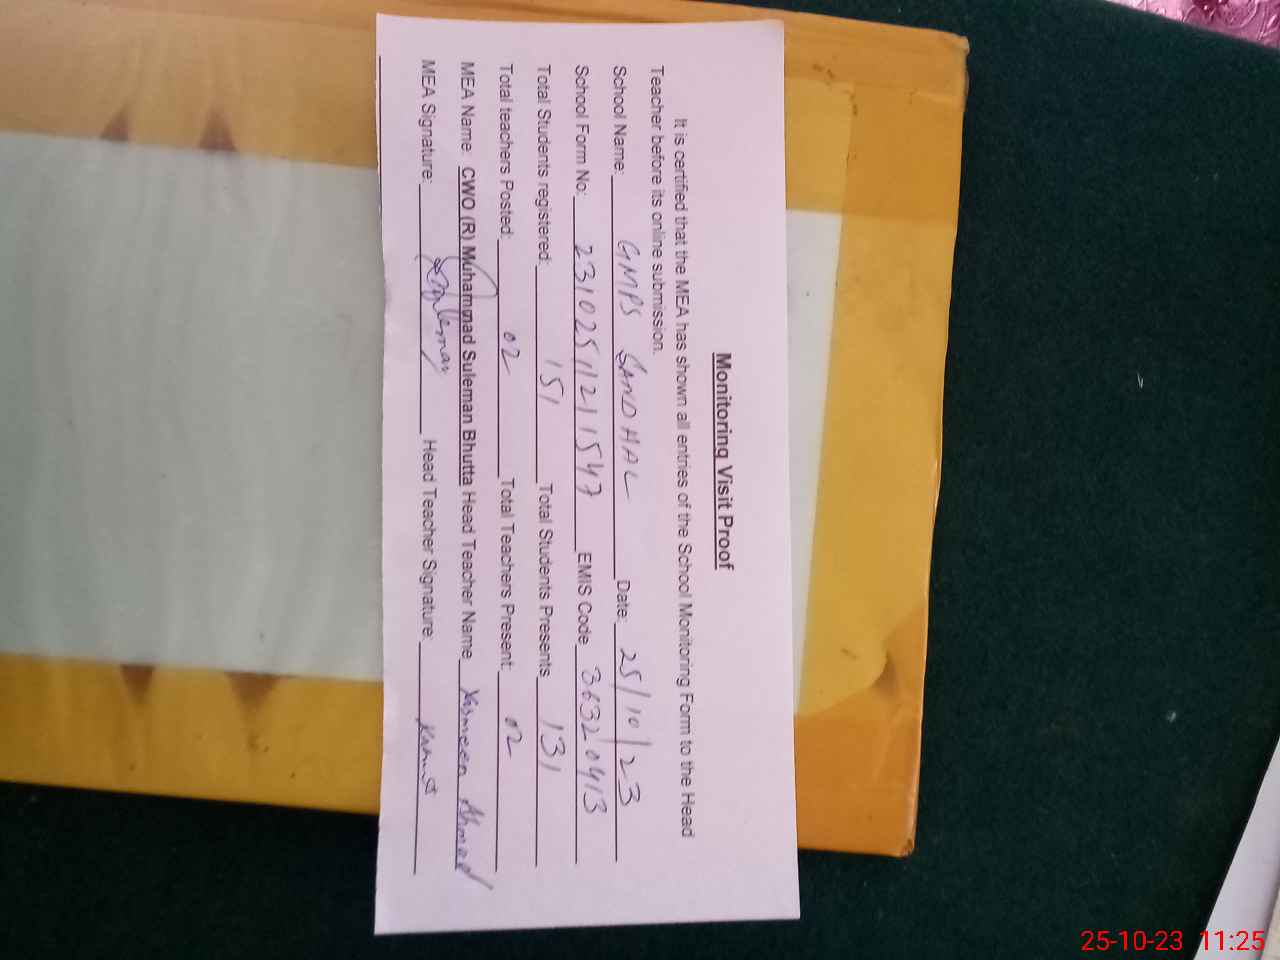 Monitoring Visit Proof
It is certified that the MEA has shown all entries of the School Monitoring Form to the Head
Teacher before its online submission.
School Name: GMPS SANDHAL Date: 25/10/23
School Form No: 23102511211547 EMIS Code 36320413
Total Students registered: 151 Total Students Presents 131
Total teachers Posted: 02 Total Teachers Present: 02
MEA Name: CWO (R) Muhammad Suleman Bhutta Head Teacher Name Yasmeen Ahmad
MEA Signature: Head Teacher Signature:
25-10-23 11:25